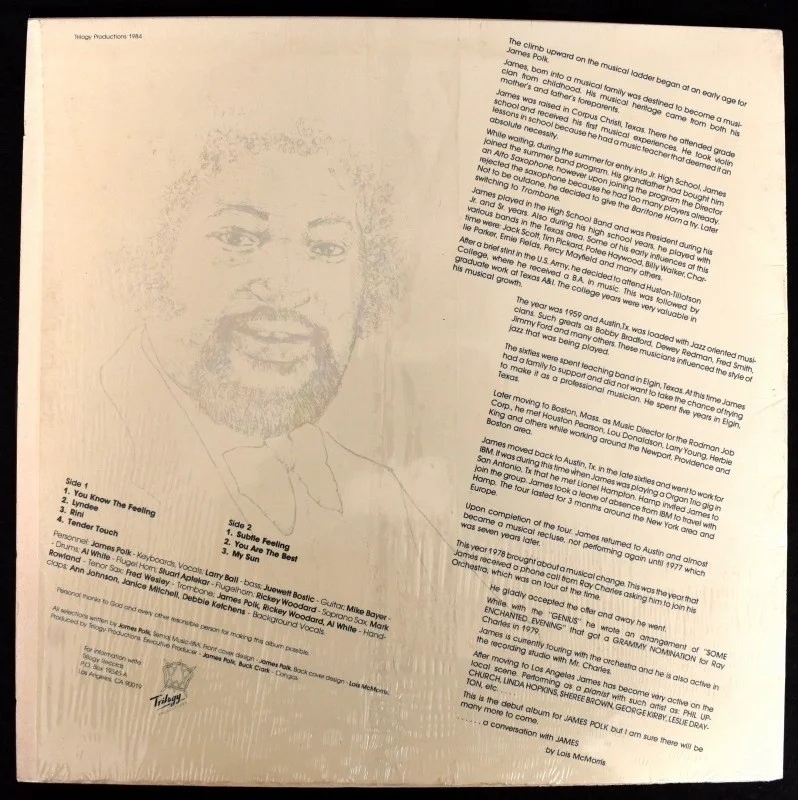 Trilogy Productions 1984
The climb upward on the musical ladder began at an early age for
James Polk.
James, born into a musical family was destined to become a musi-
cian from childhood. His musical heritage came from both his
mother's and father's foreparents.
James was raised in Corpus Christi, Texas. There he attended grade
school and received his first musical experiences. He took violin
lessons in school because he had a music teacher that deemed it an
absolute necessity.
While waiting, during the summer for entry into Jr. High School, James
joined the summer band program. His grandfather had bought him
an Alto Saxophone, however upon joining the program the Director
rejected the saxophone because he had too many players already.
Not to be outdone, he decided to give the Baritone Horn a try. Later
switching to Trombone.
James played in the High School Band and was President during his
Jr. and Sr. years. Also during his high school years, he played with
various bands in the Texas area. Some of his early influences at this
time were: Jack Scott, Tim Pickard, Potee Haywood, Billy Walker, Char-
lie Parker, Ernie Fields, Percy Mayfield and many others.
After a brief stint in the U.S. Army, he decided to attend Huston-Tillotson
College, where he received a B.A. in music. This was followed by
graduate work at Texas A&I. The college years were very valuable in
his musical growth.
The year was 1959 and Austin, Tx. was loaded with Jazz oriented musi-
cians. Such greats as Bobby Bradford, Dewey Redman, Fred Smith,
Jimmy Ford and many others. These musicians influenced the style of
jazz that was being played.
The sixties were spent teaching band in Elgin, Texas. At this time James
had a family to support and did not want to take the chance of trying
to make it as a professional musician. He spent five years in Elgin,
Texas.
Later moving to Boston, Mass. as Music Director for the Rodman Job
Corp., he met Houston Pearson, Lou Donaldson, Larry Young, Herbie
King and others while working around the Newport, Providence and
Boston area.
James moved back to Austin, Tx. in the late sixties and went to work for
IBM. It was during this time when James was playing a Organ Trio gig in
San Antonio, Tx that he met Lionel Hampton. Hamp invited James to
join the group. James took a leave of absence from IBM to travel with
Hamp. The tour lasted for 3 months around the New York area and
Europe.
Upon completion of the tour. James returned to Austin and almost
became a musical recluse, not performing again until 1977 which
was seven years later.
This year 1978 brought about a musical change. This was the year that
James received a phone call from Ray Charles asking him to join his
Orchestra, which was on tour at the time.
He gladly accepted the offer and away he went.
While, with the "GENIUS" he wrote an arrangement of "SOME
ENCHANTED EVENING" that got a GRAMMY NOMINATION for Ray
Charles in 1979.
James is currently touring with the orchestra and he is also active in
the recording studio with Mr. Charles.
After moving to Los Angeles James has become very active on the
local scene. Performing as a pianist with such artist as: PHIL UP-
CHURCH, LINDA HOPKINS, SHEREE BROWN, GEORGE KIRBY, LESLIE DRAY-
TON, etc.......
This is the debut album for JAMES POLK but I am sure there will be
many more to come.
....... a conversation with JAMES
by Lois McMorris
Side 1
1. You Know The Feeling
2. Lyndee
3. Rini
4. Tender Touch
Side 2
1. Subtle Feeling
2. You Are The Best
3. My Sun
Personnel: James Polk - Keyboards, Vocals; Larry Ball - bass; Juewett Bostic - Guitar; Mike Bayer
- Drums; Al White - Flugel Horn; Stuart Aptekar - Flugelhorn; Rickey Woodard - Soprano Sax; Mark
Rowland - Tenor Sax; Fred Wesley - Trombone; James Polk, Rickey Woodard, Al White - Hand-
claps; Ann Johnson, Janice Mitchell, Debbie Ketchens - Background Vocals.
Personal thanks to God and every other responsible person for making this album possible.
All selections written by James Polk, Music-BMI. Front cover design - James Polk. Back cover design - Lois McMorris.
Produced by Trilogy Productions. Executive Producer - James Polk, Buck Clark - Congas.
For information write
Trilogy Records
P.O. Box 19345 A
Los Angeles, CA 90019
Trilogy